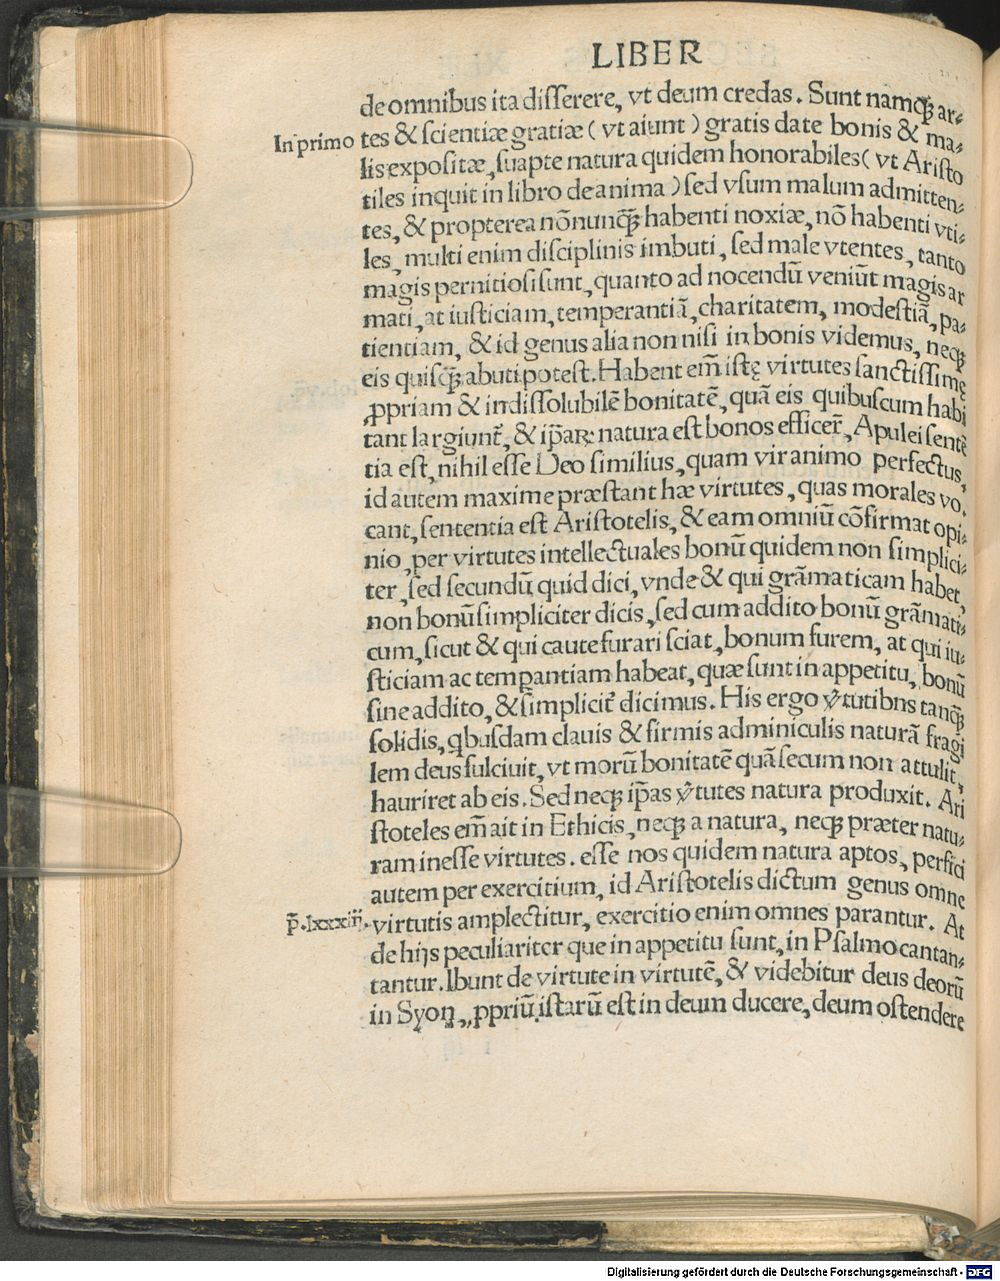 LIBER
de omnibus ita disserere, vt deum credas. Sunt namqꝫ ar-
In primo
tes & scientiæ gratiæ ( vt aiunt ) gratis date bonis & ma-
lis expositæ, suapte natura quidem honorabiles ( vt Aristo
tiles inquit in libro de anima ) sed vsum malum admitten-
tes, & propterea nōnunqꝫ̄ habenti noxiæ, nō habenti vti-
les, multi enim disciplinis imbuti, sed male vtentes, tanto
magis pernitiosi sunt, quanto ad nocendū veniūt magis ar
mati, at iusticiam, temperantiā, charitatem, modestiā, pa-
tientiam, & id genus alia non nisi in bonis videmus, neqꝫ
eis quisqꝫ̄ abuti potest. Habent em̄ istę virtutes sanctissimę
ꝓpriam & indissolubilē bonitatē, quā eis quibuscum habi
tant largiunt᷑, & ip̄aꝝ natura est bonos efficer̄, Apulei sentē
tia est, nihil esse Deo similius, quam vir animo perfectus,
id autem maxime præstant hæ virtutes, quas morales vo.
cant, sententia est Aristotelis, & eam omniū cōfirmat opi-
nio, per virtutes intellectuales bonū quidem non simplici-
ter, sed secundū quid dici, vnde & qui grāmaticam habet,
non bonū simpliciter dicis, sed cum addito bonū grāmati-
cum, sicut & qui caute furari sciat, bonum furem, at qui iu-
sticiam ac temꝑantiam habeat, quæ sunt in appetitu, bonū
sine addito, & simplicit᷑ dicimus. His ergo v̄tutibns tanqꝫ̄
solidis, qbusdam clauis & firmis adminiculis naturā fragi
lem deus fulciuit, vt morū bonitatē quā secum non attulit,
hauriret ab eis. Sed neqꝫ ip̄as v̄tutes natura produxit. Ari
stoteles em̄ ait in Ethicis, neqꝫ a natura, neqꝫ præter natu-
ram inesse virtutes. esse nos quidem natura aptos, perfici
autem per exercitium, id Aristotelis dictum genus omne
p̄. lxxxiij.
virtutis amplectitur, exercitio enim omnes parantur. At
de hijs peculiariter que in appetitu sunt, in Psalmo cantan-
tantur. Ibunt de virtute in virtutē, & videbitur deus deorū
in Syon, ꝓpriū istarū est in deum ducere, deum ostendere
Digitalisierung gefördert durch die Deutsche Forschungsgemeinschaft - DFG